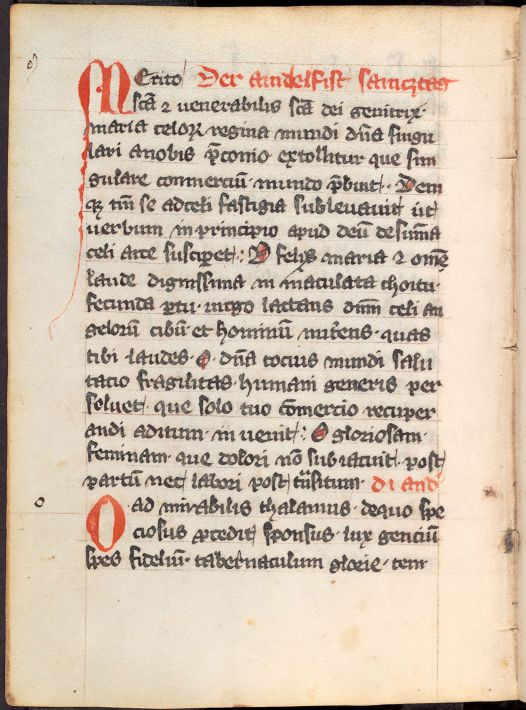 MErito Der andelfist samcztag
scā ⁊ venerabilis scā dei genitrix·
maria celoꝝ regina mundi dn̄a singu
lari anobis p̄conio extollitur que sin
gulare commerciū· mundo p̄buit·· Dem
qꝫ tm̄ se adceli fastigia subleuauit ut
verbum in principio apud deū de sum̄a
celi arce susciperet·: O felix maria ⁊ om̄e
laude dignissima in maculata choitu·
fecunda p̄tu· virgo lactans dnm̄ celi an
gelorū cibū et hominū nutriens· quas
tibi laudes· O dn̄a tocius mundi salu
tacio fragilitas· humani generis per
soluet· que solo tuo cōmercio recuper
andi aditum· in uenit·: O gloriosam·
feminam· que dolori nō subiacuit· post
partū nec labori post tn̄situm· di and
O ad mirabilis thalamus· dequo spe
ciosus ꝓcedit sponsus· lux genciū
spes fidelium· tabernaculum glorie· tem